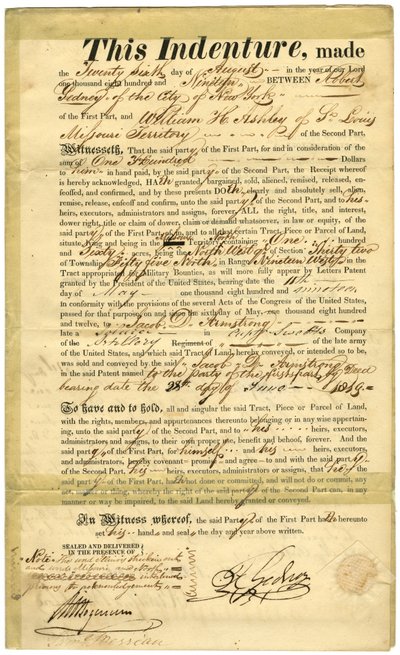 This Indenture, made
the Twenty sixth day of August in the year of our Lord
one thousand eight hundred and Nineteen BETWEEN Robert
Gedney of the City of New York
of the First Part, and William H. Ashley of St. Louis
Missouri Territory of the Second Part,
Witnesseth, That the said party of the First Part, for and in consideration of the
sum of One Hundred Dollars
to him in hand paid, by the said party of the Second Part, the Receipt whereof
is hereby acknowledged, Hath granted, bargained, sold, aliened, remised, released, en-
feoffed, and confirmed, and by these presents DOth clearly and absolutely sell, alien,
remise, release, enfeoff and confirm, unto the said party of the Second Part, and to his
heirs, executors, administrators and assigns, forever, ALL the right, title, and interest,
dower right, title or claim of dower, claim or demand whatsoever, in law or equity, of the
said party of the First Part, in and to all that certain Tract, Piece or Parcel of Land,
situate, lying and being in the Territory, containing One hundred
and Sixty acres, being the North West qr of Section Thirty two
of Township Fifty five North, in Range Nineteen West, in the
Tract appropriated for Military Bounties, as will more fully appear by Letters Patent
granted by the President of the United States, bearing date the
day of May one thousand eight hundred and nineteen,
in conformity with the provisions of several Acts of the Congress of the United States,
passed for that purpose, on and upon the sixth day of May, one thousand eight hundred
and twelve, to Jacob D. Armstrong
late a in Company
of the Artillery Regiment of of the late army
of the United States, and which said Tract of Land hereby conveyed, or intended to be,
was sold and conveyed by the said Jacob D. Armstrong
in the said Patent named to the Party of the first part by Deed
bearing date the 28th day of June 1819
To have and to hold, all and singular the said Tract, Piece or Parcel of Land,
with the rights, members, and appurtenances thereunto belonging or in any wise appertain-
ing, unto the said party of the Second Part, and to his heirs, executors,
administrators and assigns, to their own proper use, benefit and behoof, forever. And the
said party of the First Part, for himself and his heirs, executors,
and administrators, hereby covenant promise and agree to and with the said party of
the Second Part, his heirs, executors, administrators or assigns, that he the
said party of the First Part, hath not done or committed, and will not do or commit, any
act, matter or thing, whereby the right of the said party of the Second Part can, in any
manner or way be impaired, to the said Land hereby granted or conveyed.
In Witness whereof, the said Party of the First Part hath hereunto
set his hand and seal the day and year above written.
SEALED AND DELIVERED
IN THE PRESENCE OF
Note The word Illinois stricken out
and words Missouri and North
interlined
previous to acknowledgement
R Gedney